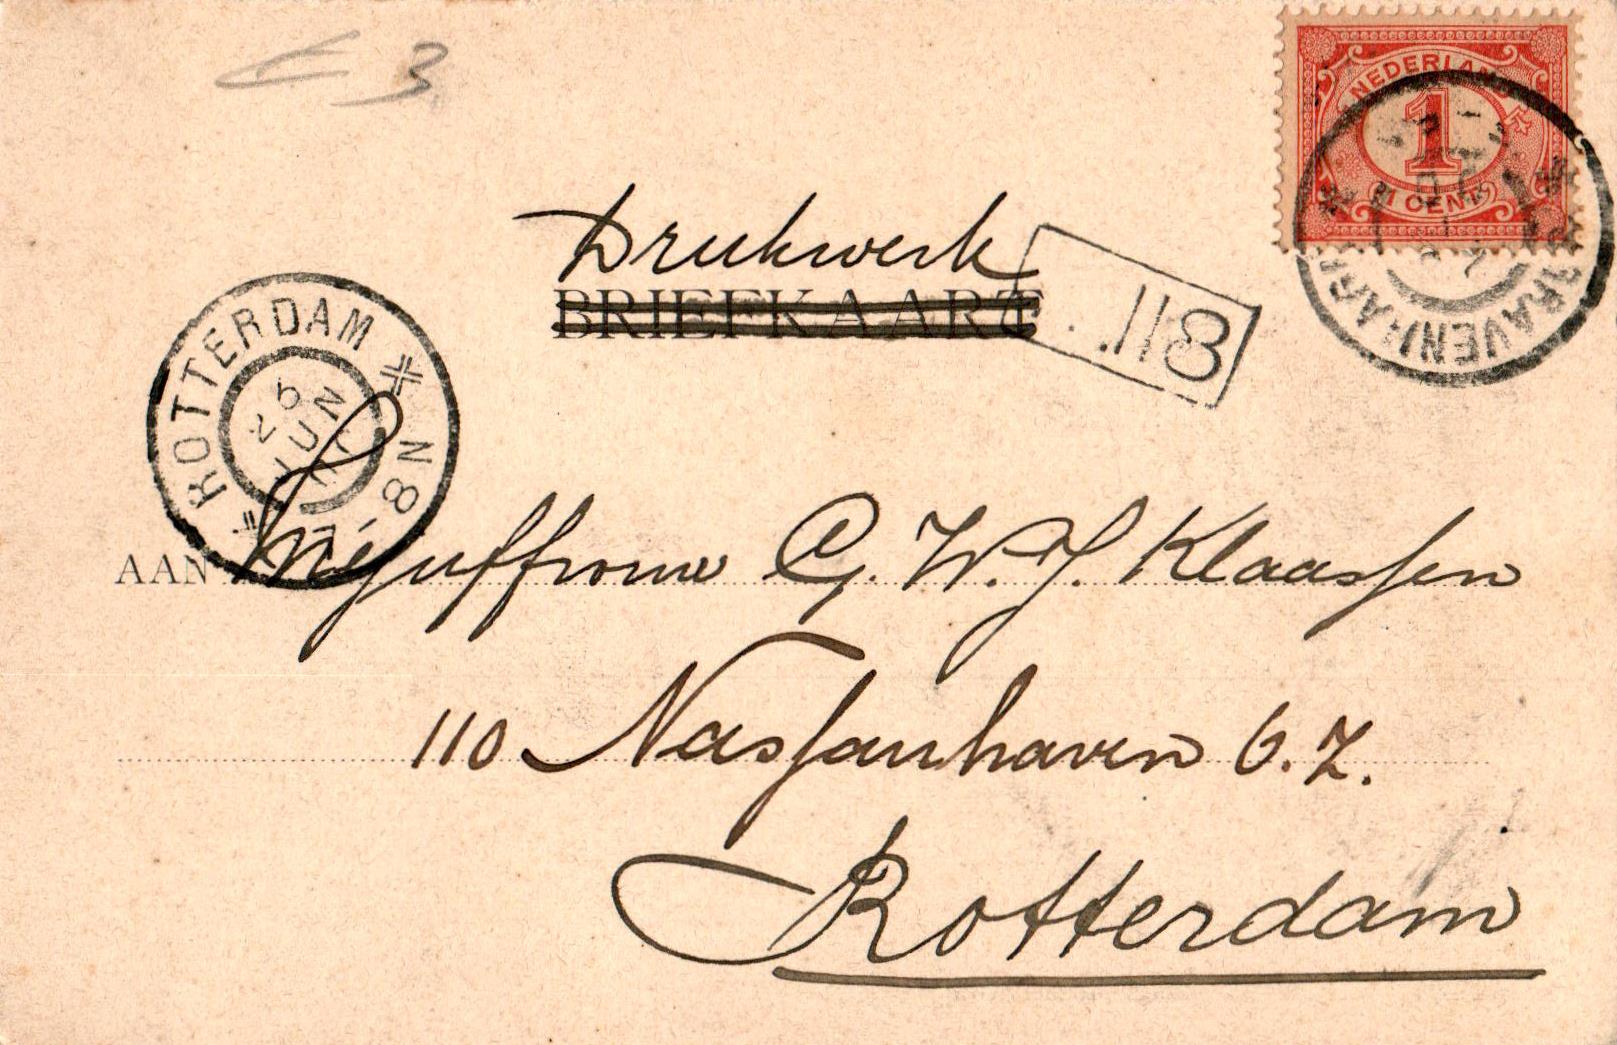 € 3
NEDERLAND
1
1 CENT
'S GRAVENHAGE
Drukwerk
BRIEFKAART
118
ROTTERDAM N 8
26
JUN
AAN Mejuffrouw G. W. J. Klaassen
110 Nassauhaven O.Z.
Rotterdam